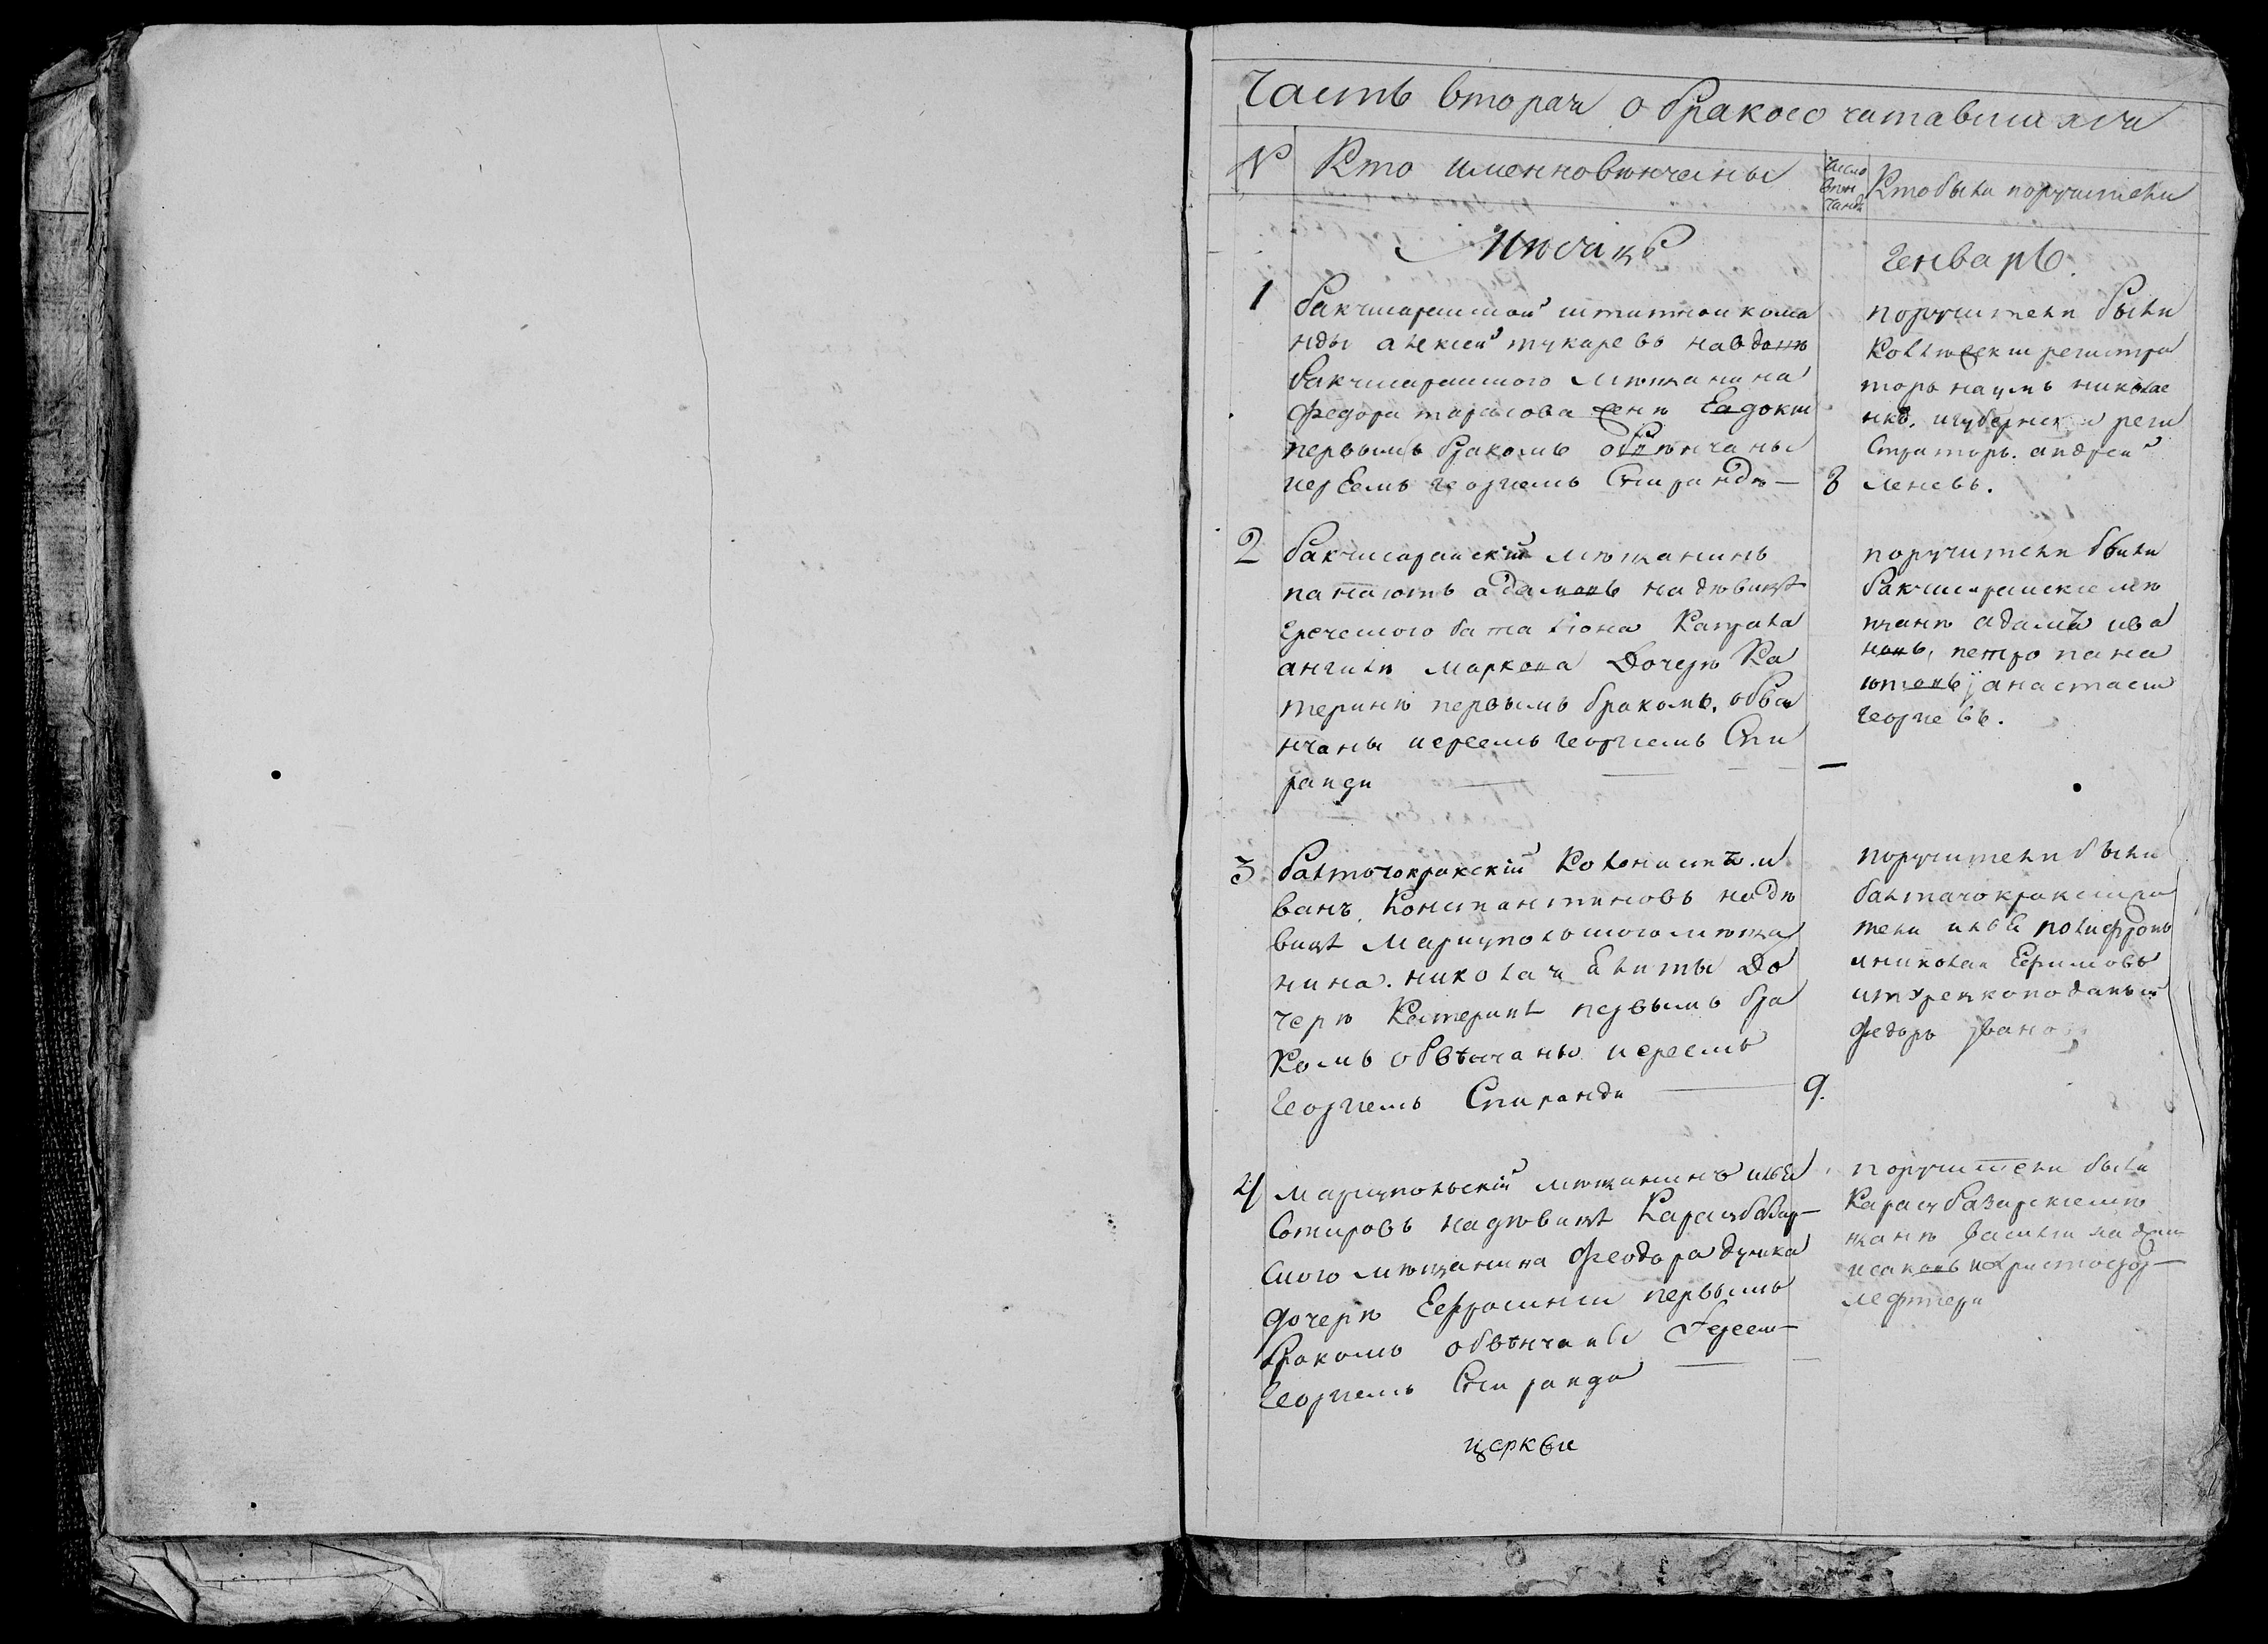 Часть вторая о бракосочатавшихся
№
Кто именно вѣнчаны
число вѣнчанія
Кто были поручители
Мѣсяцъ
Генварь.
1
бакчисарайской штатной кома
нды алексей тукаревъ на вдовѣ
бакчисарайского мѣщанина
федора тарасова женѣ Евдокіи
первымъ бракомъ обвѣнчаны
иереемъ георгиемъ Спиранди —
8
поручители были
Колежскій регистра
торъ наумъ николае
нко, и губернскій реги
страторъ. андрей
леневъ.
2
бакчисарайскій мѣщанинъ
панаіотъ адамовъ на дѣвицѣ
Греческого баталіона Капрала
ангили маркова Дочерѣ Ка
теринѣ первымъ бракомъ. обвѣ
нчаны иереемъ георгиемъ Спи
ранди —
поручители были
бакчисарайские мѣ
щанѣ адамъ ива
новъ, петро пана
іотовъ, анастасій
георгиевъ.
3
балтачокракскій Колонистъ. и
ванъ Константиновъ на дѣ
вицѣ Мариупольского мѣща
нина. николая До
черѣ Катеринѣ первымъ бра
комъ обвѣнчаны иереемъ
Георгиемъ Спиранди —
9.
поручители были
балтачокракский жи
тели илья
и николай Ефимовъ
и турецкоподаный
федоръ Ивано
4
мариупольскій мѣщанинъ илья
Сотировъ на дѣвицѣ Карасубазар—
ского мѣщанина Феодора
дочерѣ Ефросинии первымъ
бракомъ обвѣнчаны Іереем—
Георгиемъ Спиранди —
поручители были
Карасубазарские мѣ
щанѣ василий
исаковъ и христофор—
лефтери
церкви